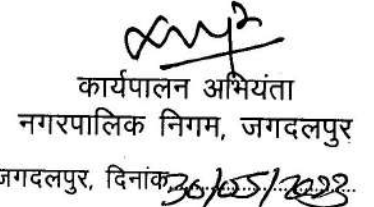 कार्यपालन अभियंता
नगरपालिक निगम, जगदलपुर
जगदलपुर, दिनांक 30/05/2023